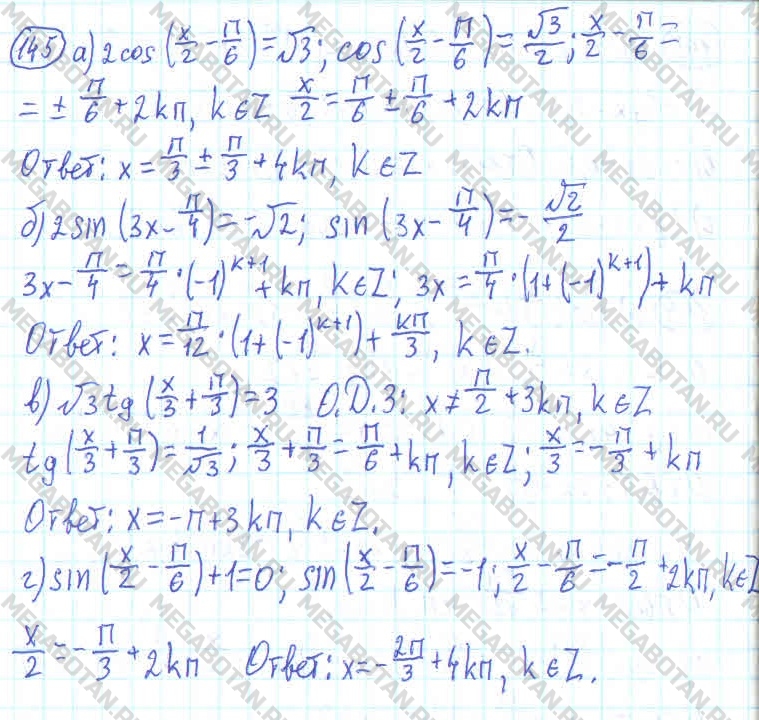 145 а) 2cos(x/2 - π/6) = √3; cos(x/2 - π/6) = √3/2; x/2 - π/6 =
= ± π/6 + 2kπ, k∈Z x/2 = π/6 ± π/6 + 2kπ
Ответ: x = π/3 ± π/3 + 4kπ, k∈Z
б) 2sin(3x - π/4) = -√2; sin(3x - π/4) = -√2/2
3x - π/4 = π/4 · (-1)^(k+1) + kπ, k∈Z; 3x = π/4 · (1 + (-1)^(k+1)) + kπ
Ответ: x = π/12 · (1 + (-1)^(k+1)) + kπ/3, k∈Z.
в) √3tg(x/3 + π/3) = 3 О.Д.З: x ≠ π/2 + 3kπ, k∈Z
tg(x/3 + π/3) = 1/√3; x/3 + π/3 = π/6 + kπ, k∈Z; x/3 = -π/3 + kπ
Ответ: x = -π + 3kπ, k∈Z.
г) sin(x/2 - π/6) + 1 = 0; sin(x/2 - π/6) = -1; x/2 - π/6 = -π/2 + 2kπ, k∈Z
x/2 = -π/3 + 2kπ Ответ: x = -2π/3 + 4kπ, k∈Z.
MEGABOTAN.RU